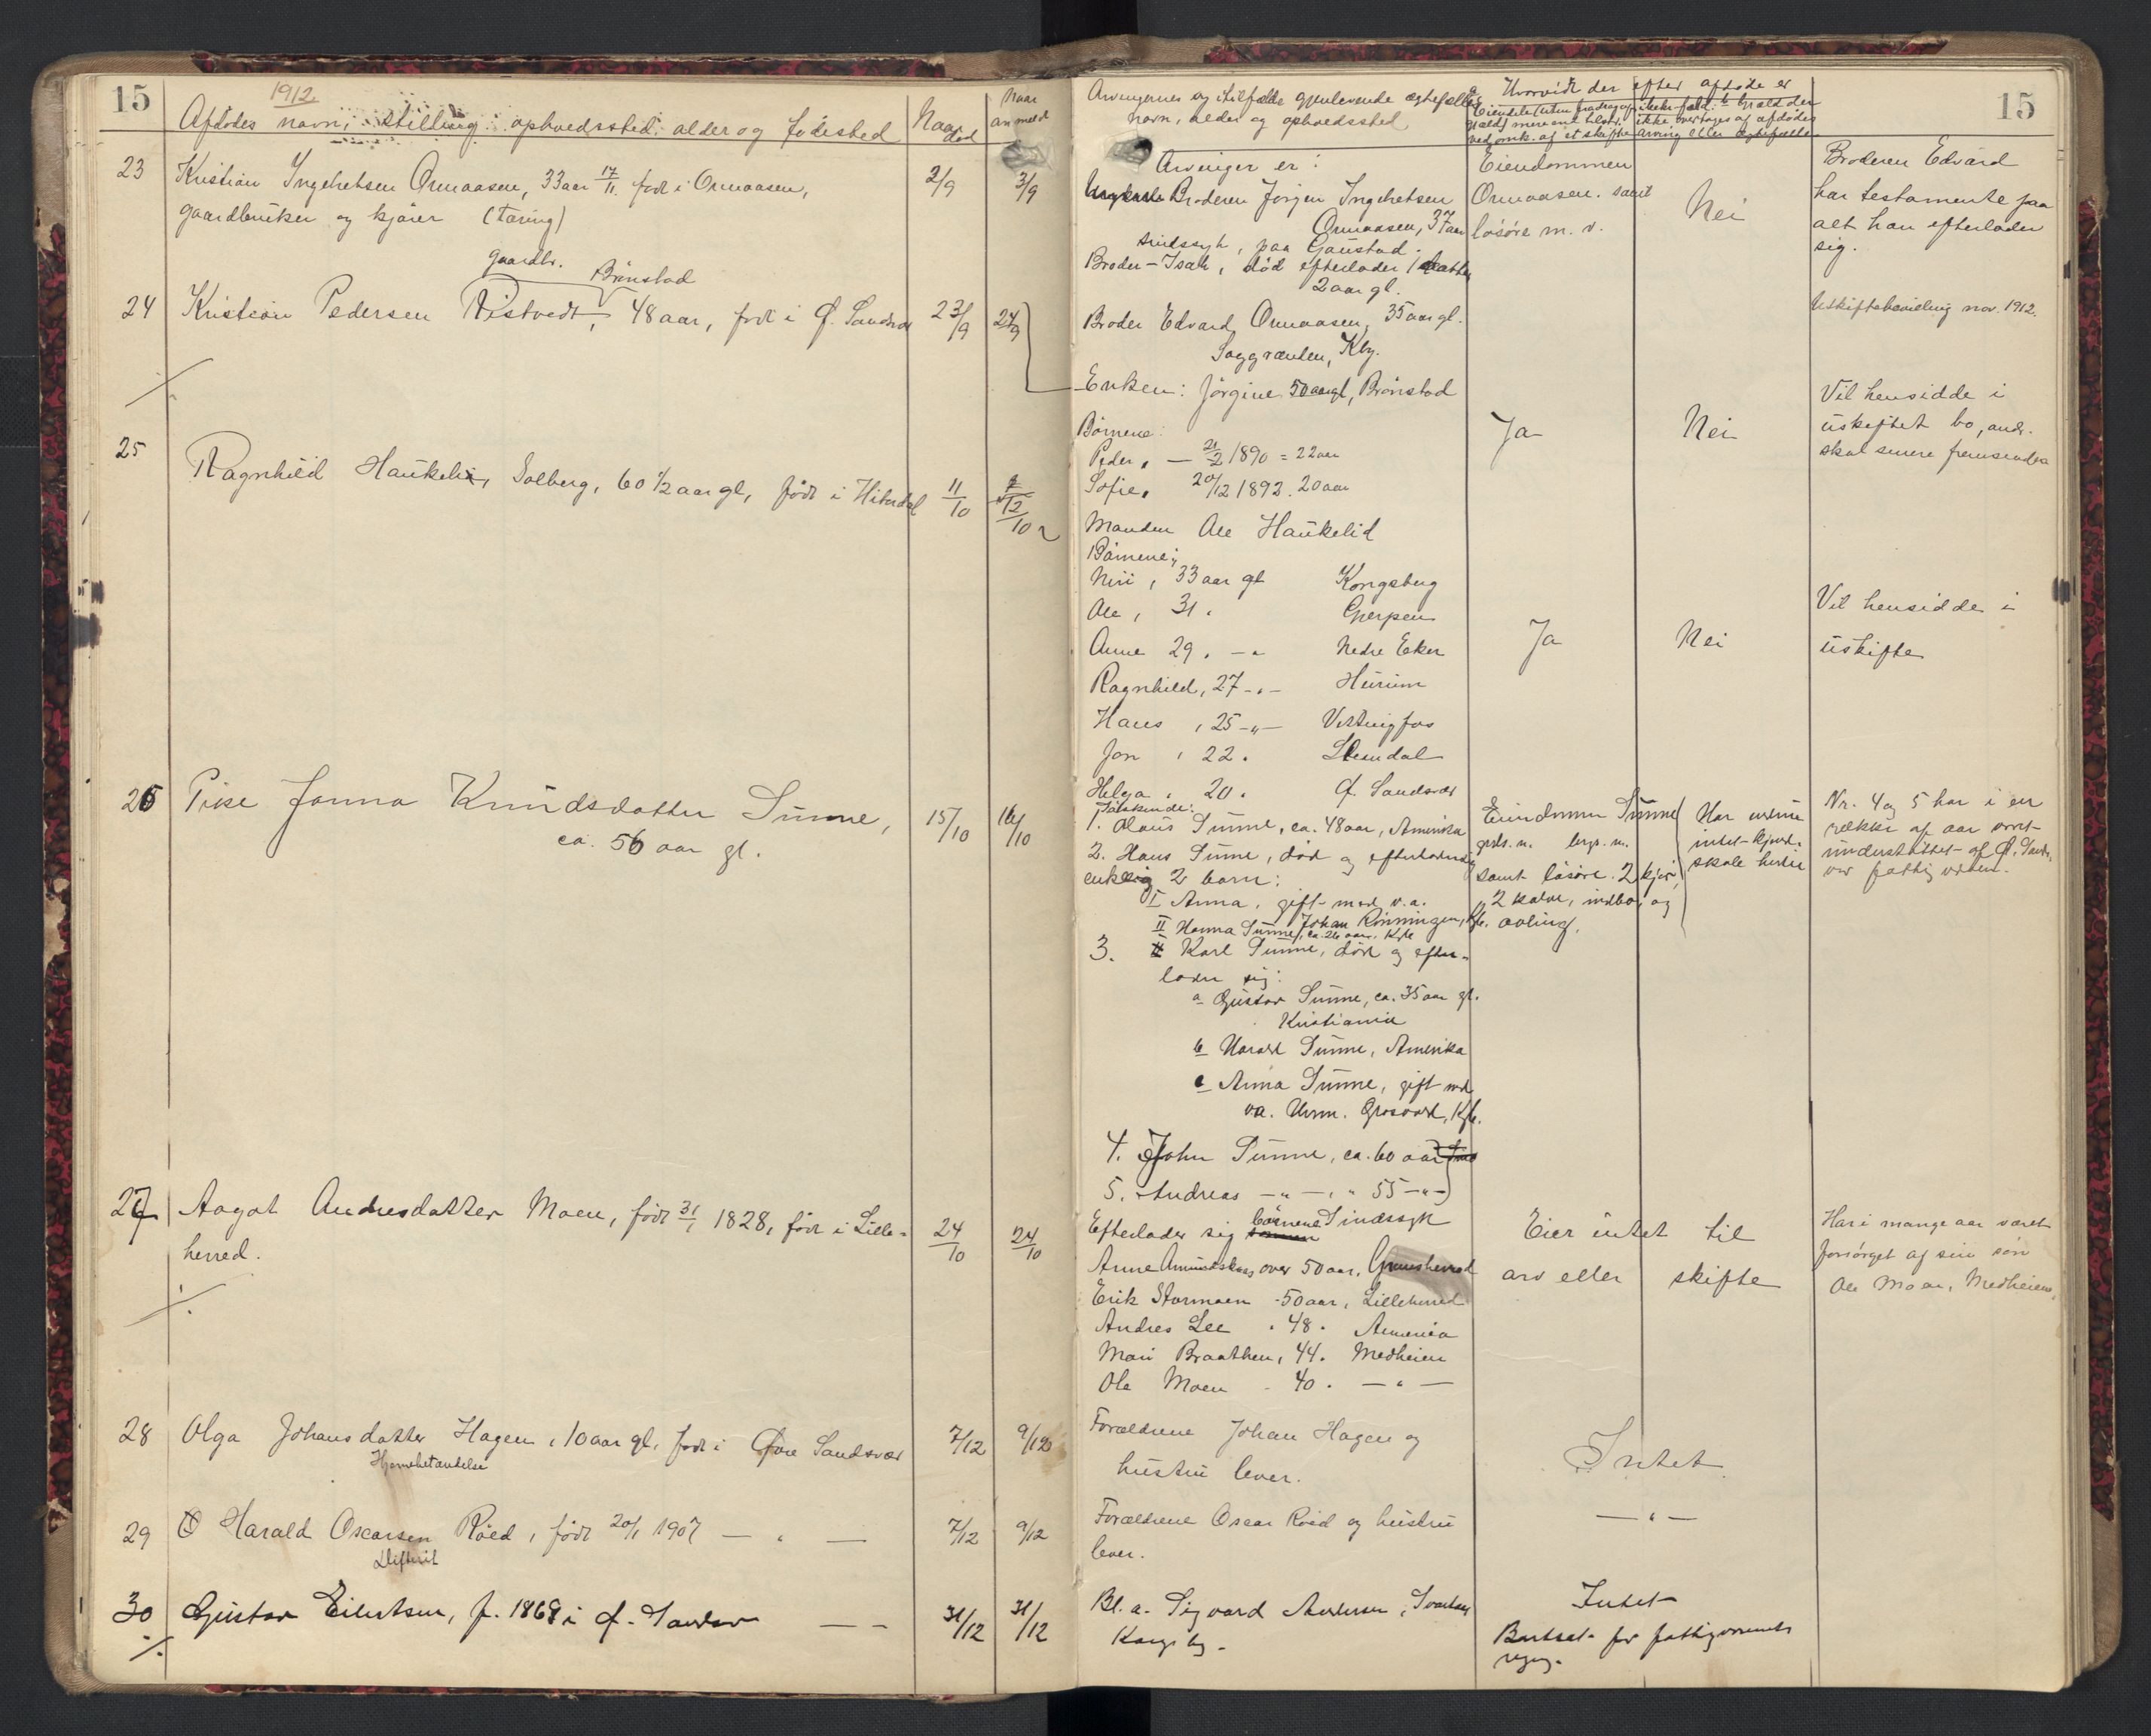 15
1912.
Afdødes navn, stilling opholdssted alder og fødested
Naar død
Naar anmeldt
23 Kristian Ingebretsen Ormaasen, 33 aar 17/11 født i Ormaasen, 2/9 3/9
gaardbruker og kjører (tæring)
gaardbr. Brönstad
24 Kristian Pedersen Ristvedt, 48 aar, født i Ø. Sandsvær 23/9 24/9
25
Ragnhild Haukelid, Solberg, 60 1/2 aar gl, født i Hiterdal 11/10 12/10
26 Pike Janna Knudsdatter Sünne, 15/10 16/10
ca. 56 aar gl.
27 Aagot Andresdatter Moen, født 31/1 1828, født i Lille- 24/10 24/10
herred.
28 Olga Johansdatter Hagen, 10 aar gl. født i Øvre Sandsvær 7/12 9/12
Hjernebetændelse
29 Harald Oscarsen Röed, født 20/1 1907 — " — 7/12 9/12
Difterit
30 Gustav Eilertsen, f. 1868 i Ø. Sandsv — — 31/12 31/12
15
Arvingernes og i tilfælde gjenlevende ægtefælles
navn, alder og opholdssted
Hvorvidt der efter afdøde er
Arvinger er:
Broderen Jørgen Ingebretsen
Ormaasen, 37 aar
sindssyk, paa Gaustad.
Broder - Isak, död efterlader 1 datter
2 aar gl.
Broder Edvard Ormaasen, 35 aar gl.
Saggrenden, Kbg.
Eiendommen
Ormaasen. samt
løsöre m. v.
Nei
Broderen Edvard
har testamente paa
alt han efterlader
sig.
Uskiftebevilling nov. 1912.
Enken: Jörgine 50 aar gl, Brönstad
Börnene:
Peder, — 21/2 1890 = 22 aar
Sofie, 20/12 1892. 20 aar
Ja
Nei
Vil hensidde i
uskiftet bo, andr.
skal senere fremsendes
Manden Ole Haukelid
Börnene:
33 aar gl Kongsberg
Ole, 31. Gjerpen
Anne 29. — " Nedre Eker
Ragnhild, 27 - " - Hurum
Hans, 25 — " — Vittingfos
Jon, 22. Slemdal
Helga. 20. Ø. Sandsvær
Ja
Nei
Vil hensidde i
uskifte
Söskende:
1. Olaus Sünne, ca. 48 aar, Amerika
2. Hans Sünne, död og efterlader sig
enke og 2 barn:
I Anna, gift med v.a.
Johan Rönningen, Kb.
II Hanna Sünne, ca. 26 aar, Kb
3. Karl Sünne, död og efter-
lader sig:
a Gustav Sünne, ca. 35 aar gl.
Kristiania
b Harald Sünne, Amerika
c Anna Sünne, gift med
va. Herm. Grosvold, Kb.
4. John Sünne, ca. 60 aar
5. Andreas — " — " 55 — " —
Sindssyk
Eiendommen Sünne
grds. n. brgs. n.
samt lösöre. 2 kjør,
2 kalve, indbo, og
avling.
Nr. 4 og 5 har i en
række af aar vært
understöttet af Ø. Sands-
vær fattigvæsen.
Efterlader sig börnene
Anne over 50 aar, Gransherred
Erik Stormoen - 50 aar, Lilleherred
Andres Lee " 48 " Amerika
Mari Braathen, 44. Medheien
Ole Moen - 40. — " —
Eier intet til
arv eller skifte
Har i mange aar været
forsörget af sin sön
Ole Moen, Medheien
Forældrene Johan Hagen og
hustru lever.
Intet
Forældrene Oscar Röed og hustru
lever.
— " —
Bl. a. Sigvard Andersen,
Kongsbg.
Intet
Bortsat for fattigvæsenets
regng.